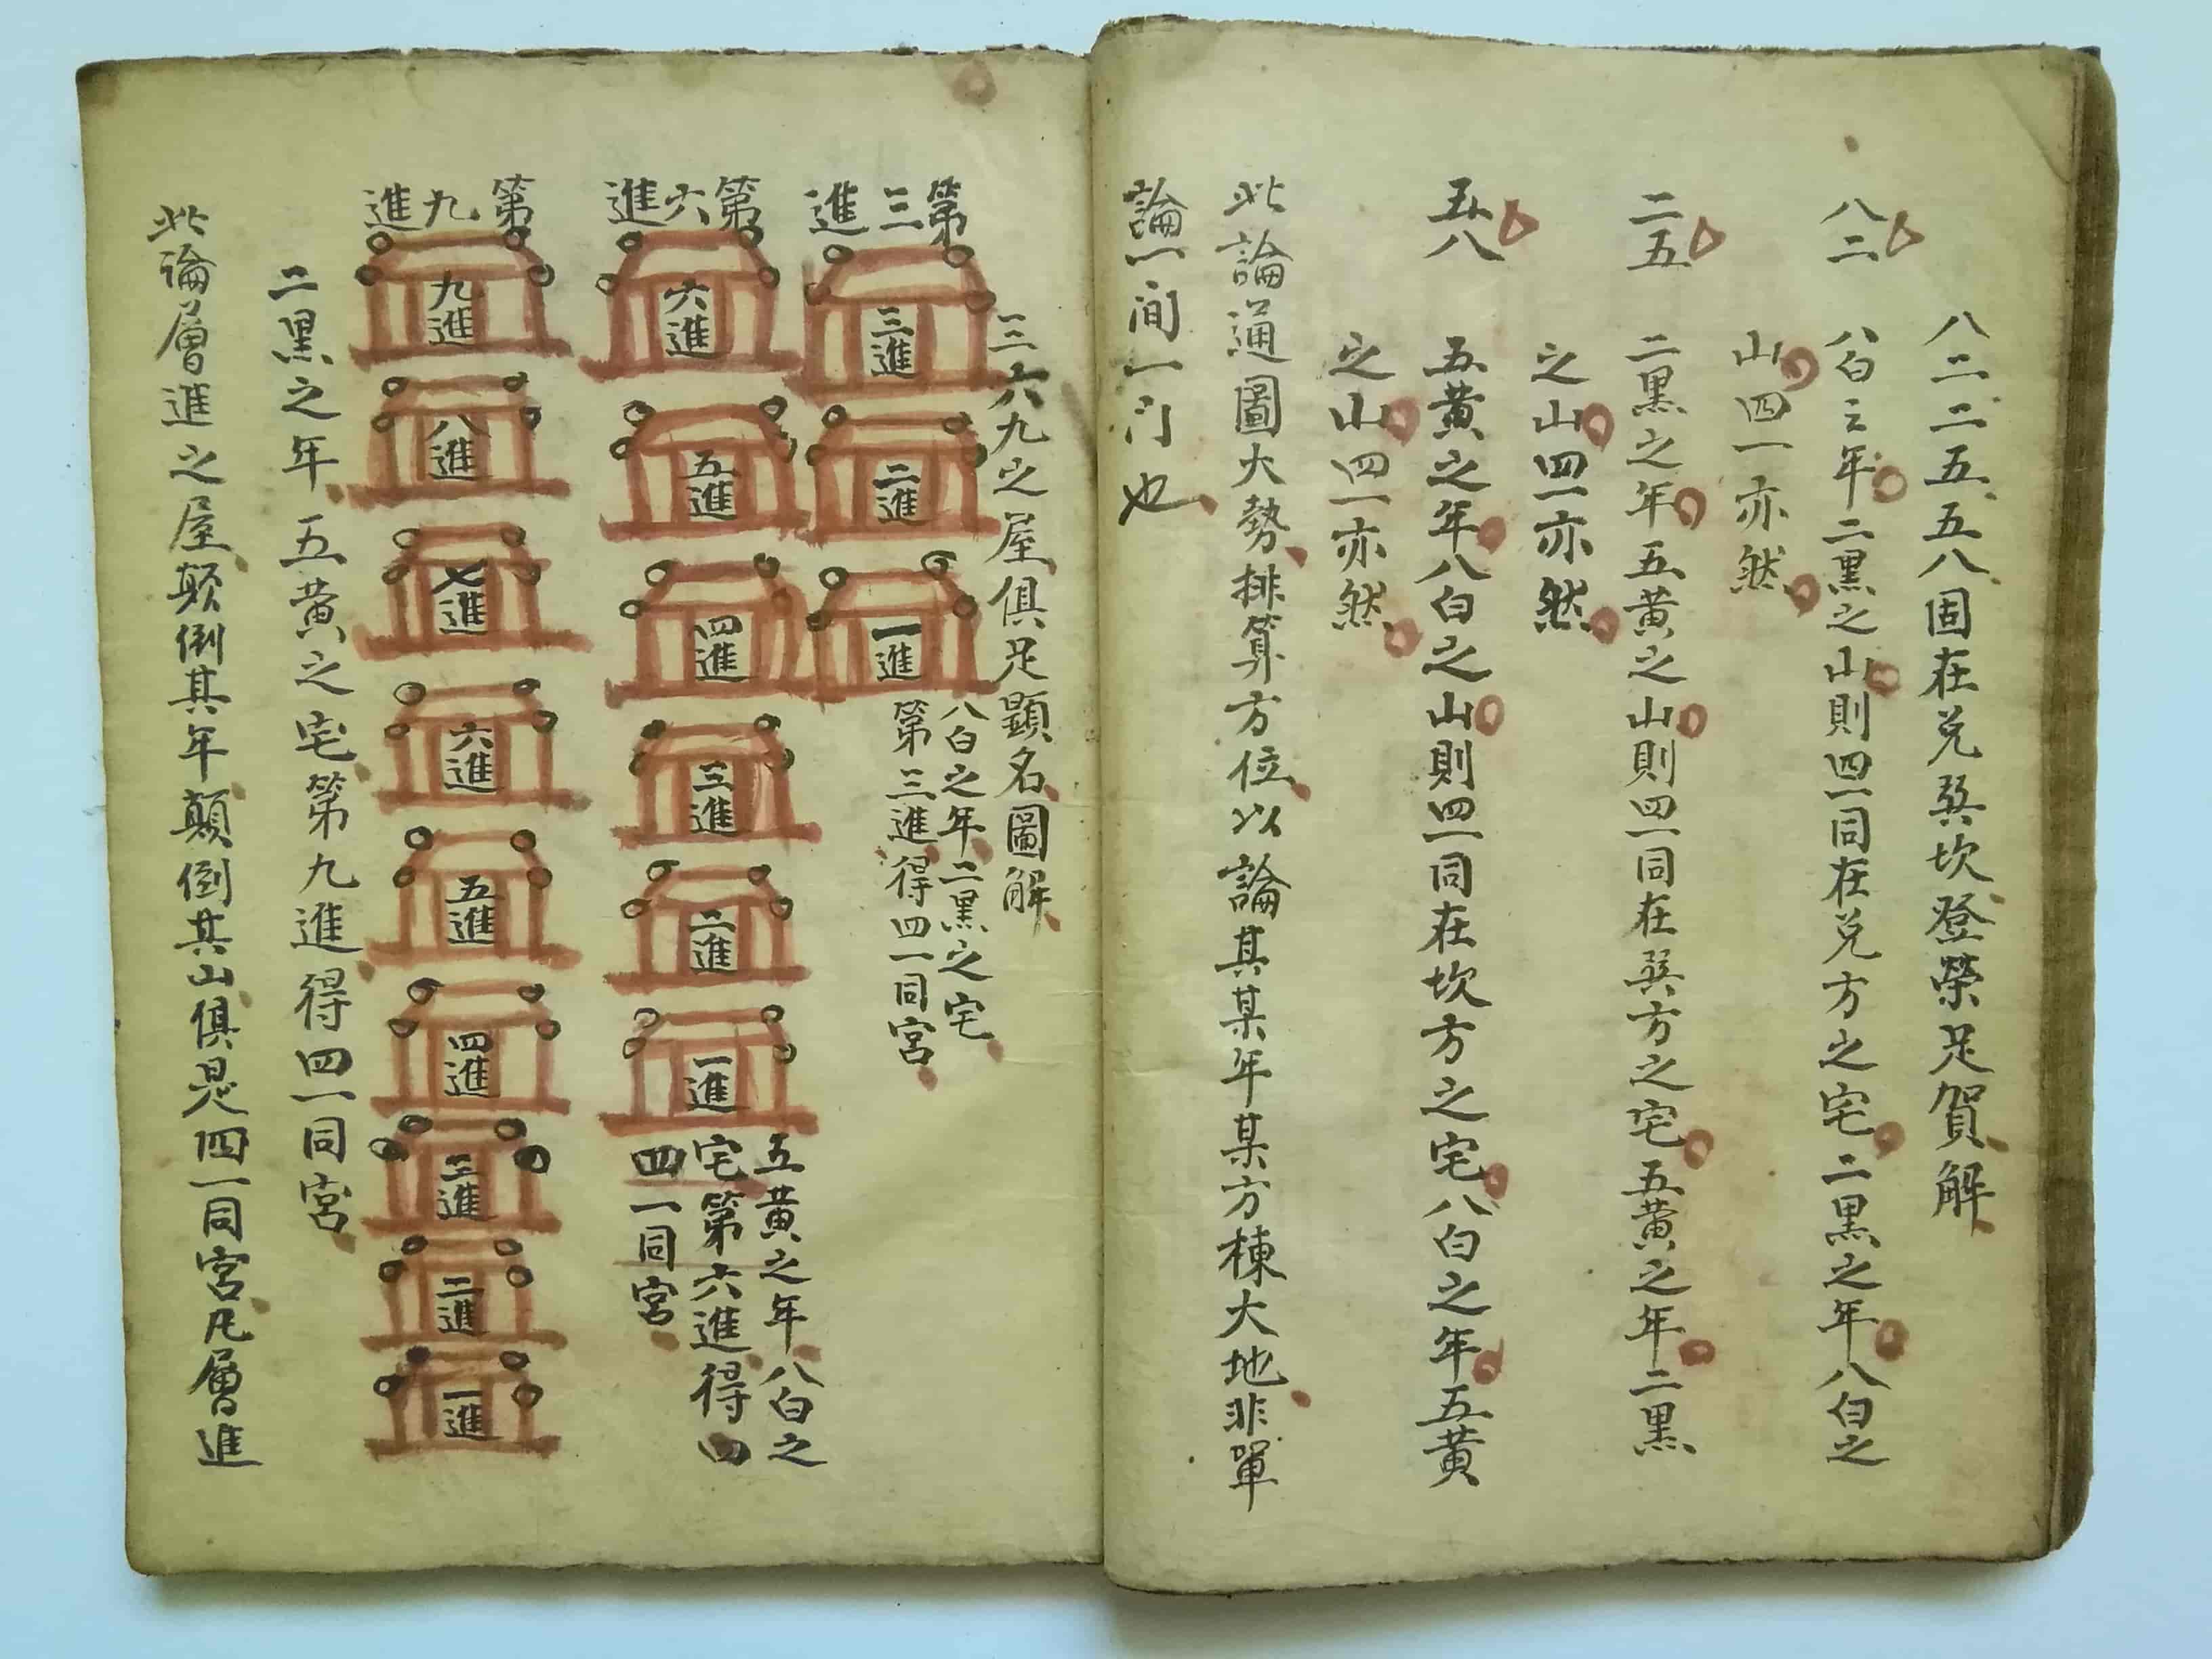 八二二五五八固在兑巽坎登榮足賀解
八二
八白之年二黑之山則四一同在兑方之宅二黑之年八白之
山四一亦然
二五
二黑之年五黃之山則四一同在巽方之宅五黃之年二黑
之山四一亦然
五八
五黃之年八白之山則四一同在坎方之宅八白之年五黃
之山四一亦然
此論通圖大勢排算方位以論其某年某方棟大地非單
論一间一门也
三六九之屋俱足顯名圖解
第三進
三進
二進
一進
八白之年二黑之宅
第三進得四一同宮
第六進
六進
五進
四進
三進
二進
一進
五黃之年八白之
宅第六進得四
四一同宮
第九進
九進
八進
七進
六進
五進
四進
三進
二進
一進
二黑之年五黃之宅第九進得四一同宮
此論層進之屋颠倒其年顛倒其山俱是四一同宮凡層進